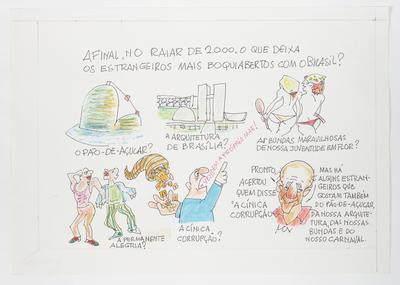 AFINAL, NO RAIAR DE 2000, O QUE DEIXA
OS ESTRANGEIROS MAIS BOQUIABERTOS COM O BRASIL?
O PÃO-DE-AÇÚCAR?
A ARQUITETURA
DE BRASÍLIA?
AS BUNDAS MARAVILHOSAS
DE NOSSA JUVENTUDE EM FLOR?
A PERMANENTE
ALEGRIA?
A CÍNICA
CORRUPÇÃO?
PRONTO,
ACERTOU
QUEM DISSE
"A CÍNICA
CORRUPÇÃO"
MAS HÁ
ALGUNS ESTRAN-
GEIROS QUE
GOSTAM TAMBÉM
DO PÃO-DE-AÇÚCAR,
DA NOSSA ARQUITE-
TURA, DAS NOSSAS
BUNDAS E DO
NOSSO CARNAVAL.